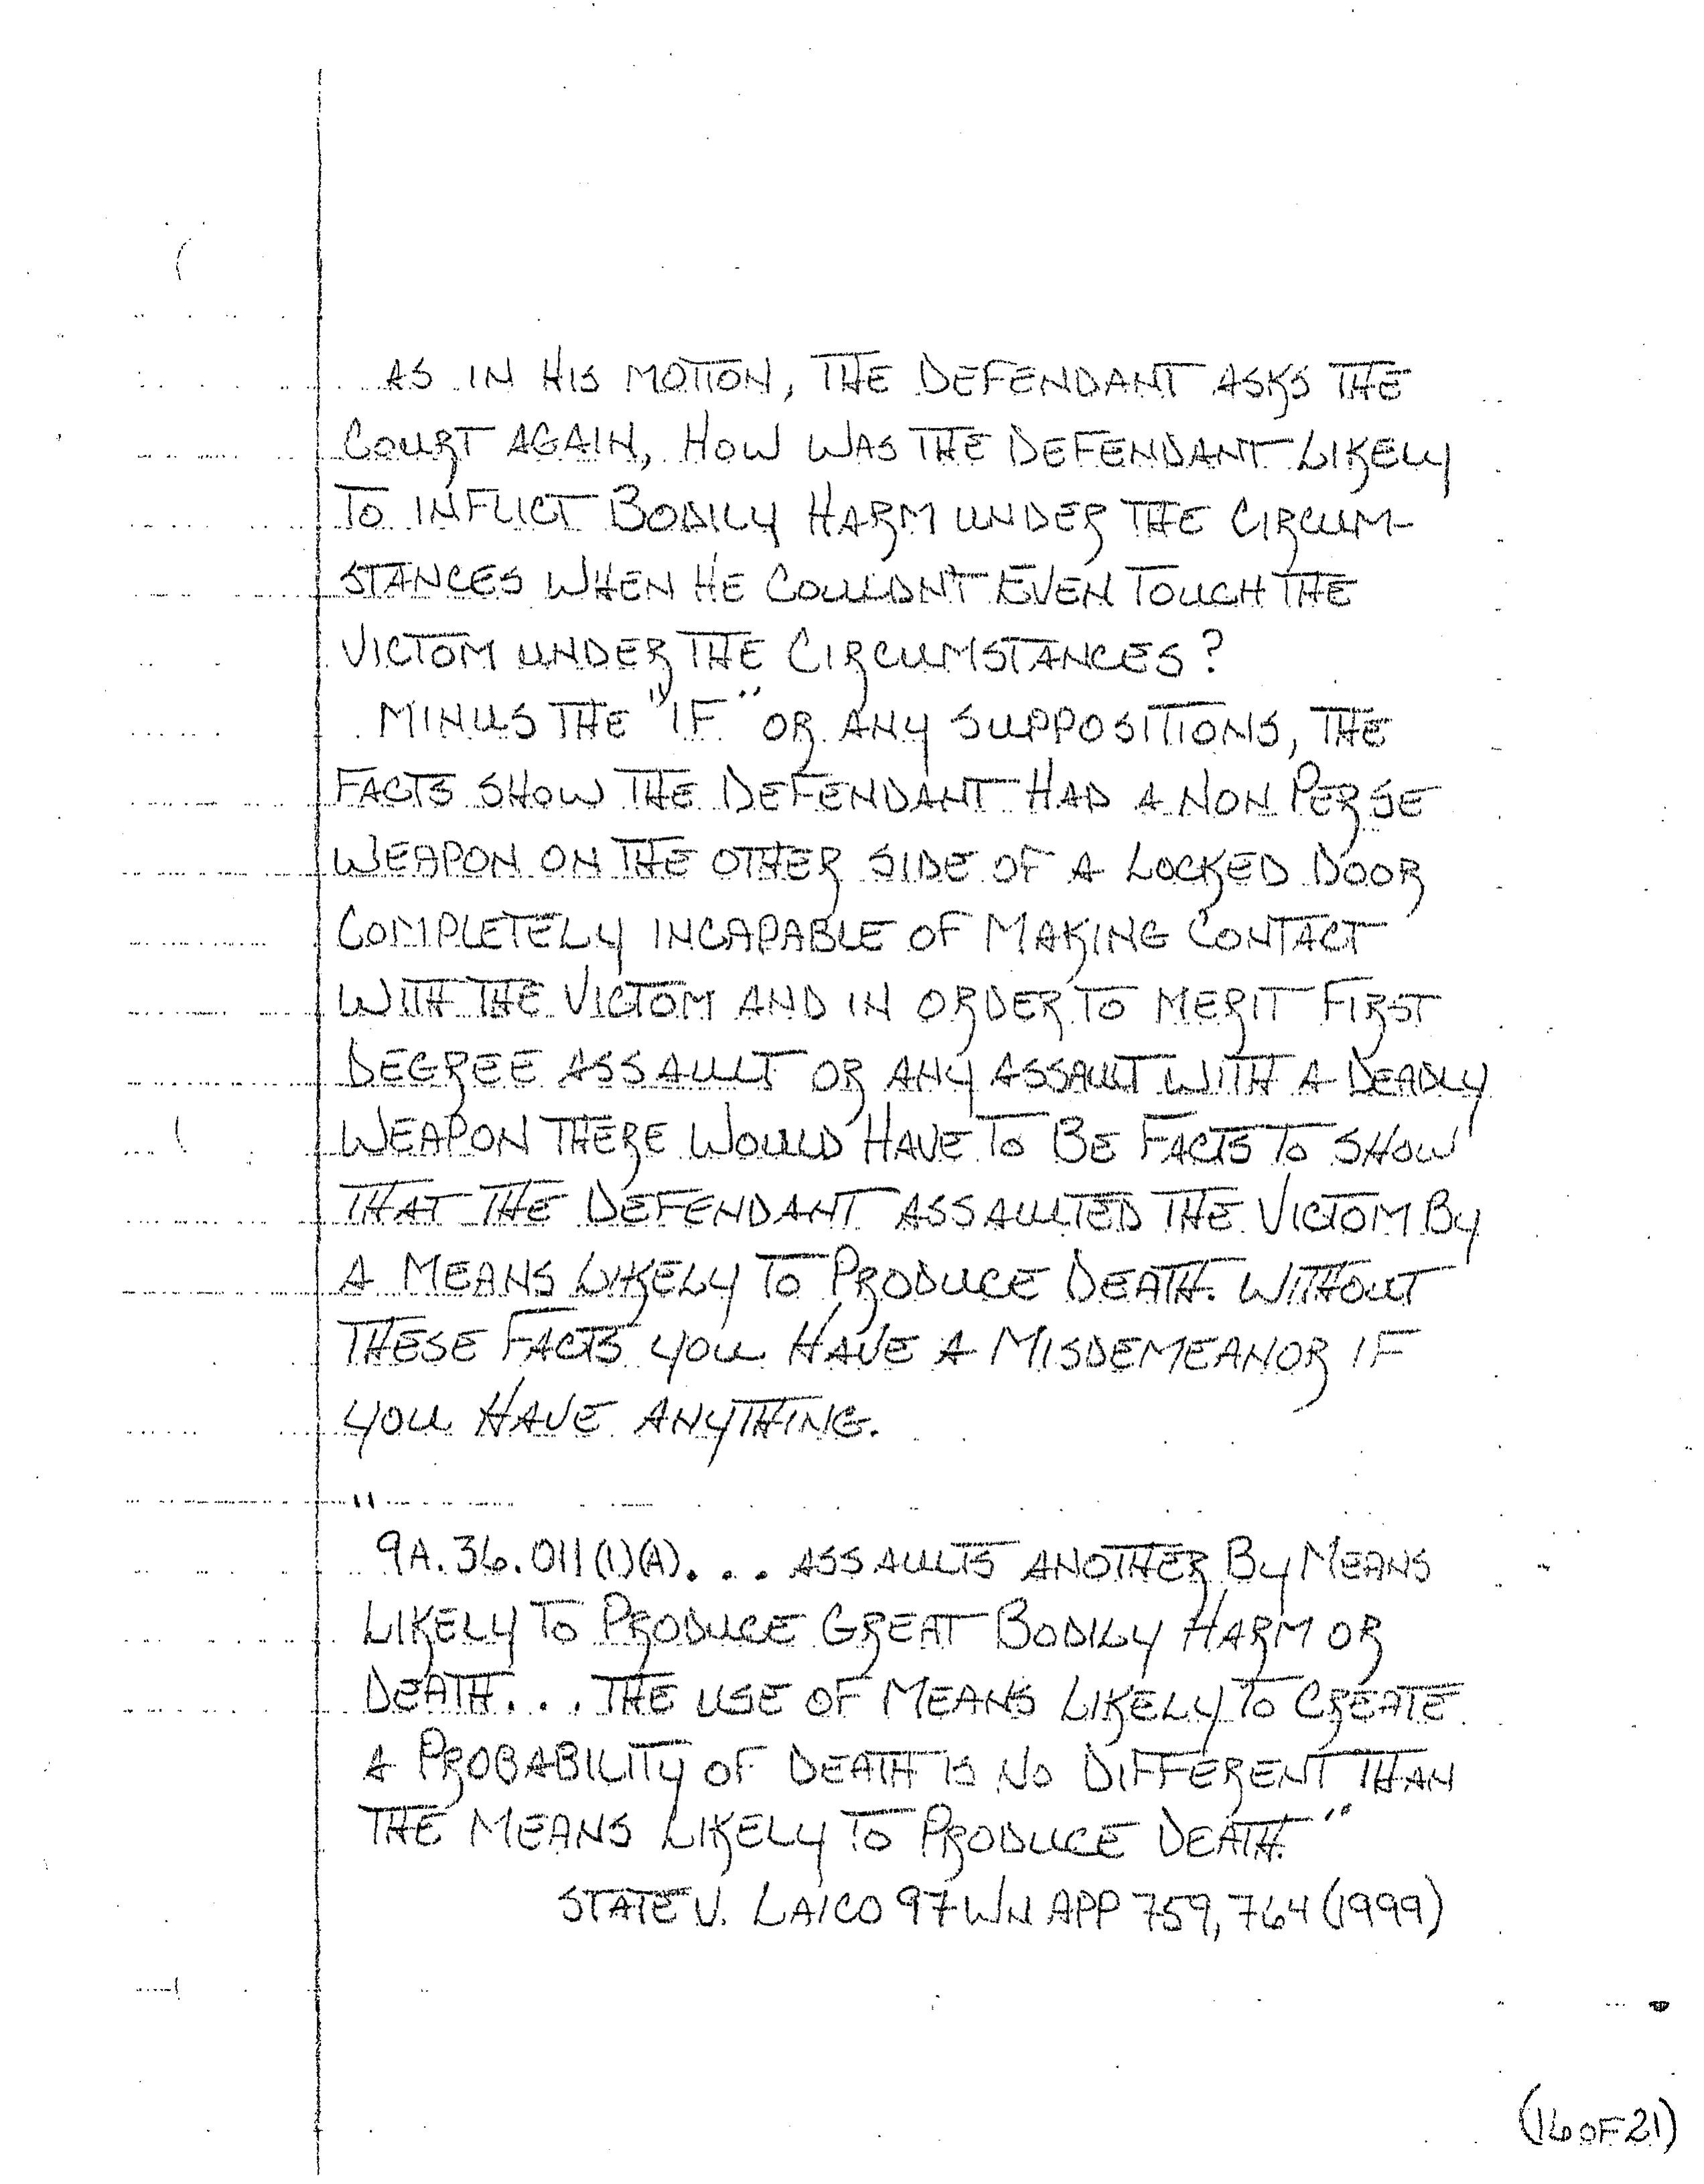 AS IN HIS MOTION, THE DEFENDANT ASKS THE
COURT AGAIN, HOW WAS THE DEFENDANT LIKELY
TO INFLICT BODILY HARM UNDER THE CIRCUM-
STANCES WHEN HE COULDN'T EVEN TOUCH THE
VICTOM UNDER THE CIRCUMSTANCES?
MINUS THE "IF" OR ANY SUPPOSITIONS, THE
FACTS SHOW THE DEFENDANT HAD A NON PER SE
WEAPON ON THE OTHER SIDE OF A LOCKED DOOR
COMPLETELY INCAPABLE OF MAKING CONTACT
WITH THE VICTOM AND IN ORDER TO MERIT FIRST
DEGREE ASSAULT OR ANY ASSAULT WITH A DEADLY
WEAPON THERE WOULD HAVE TO BE FACTS TO SHOW
THAT THE DEFENDANT ASSAULTED THE VICTOM BY
A MEANS LIKELY TO PRODUCE DEATH. WITHOUT
THESE FACTS YOU HAVE A MISDEMEANOR IF
YOU HAVE ANYTHING.
"
9A.36.011(1)(A)... ASSAULTS ANOTHER BY MEANS
LIKELY TO PRODUCE GREAT BODILY HARM OR
DEATH... THE USE OF MEANS LIKELY TO CREATE
A PROBABILITY OF DEATH IS NO DIFFERENT THAN
THE MEANS LIKELY TO PRODUCE DEATH."
STATE V. LAICO 97 WN APP 759, 764 (1999)
(16 OF 21)